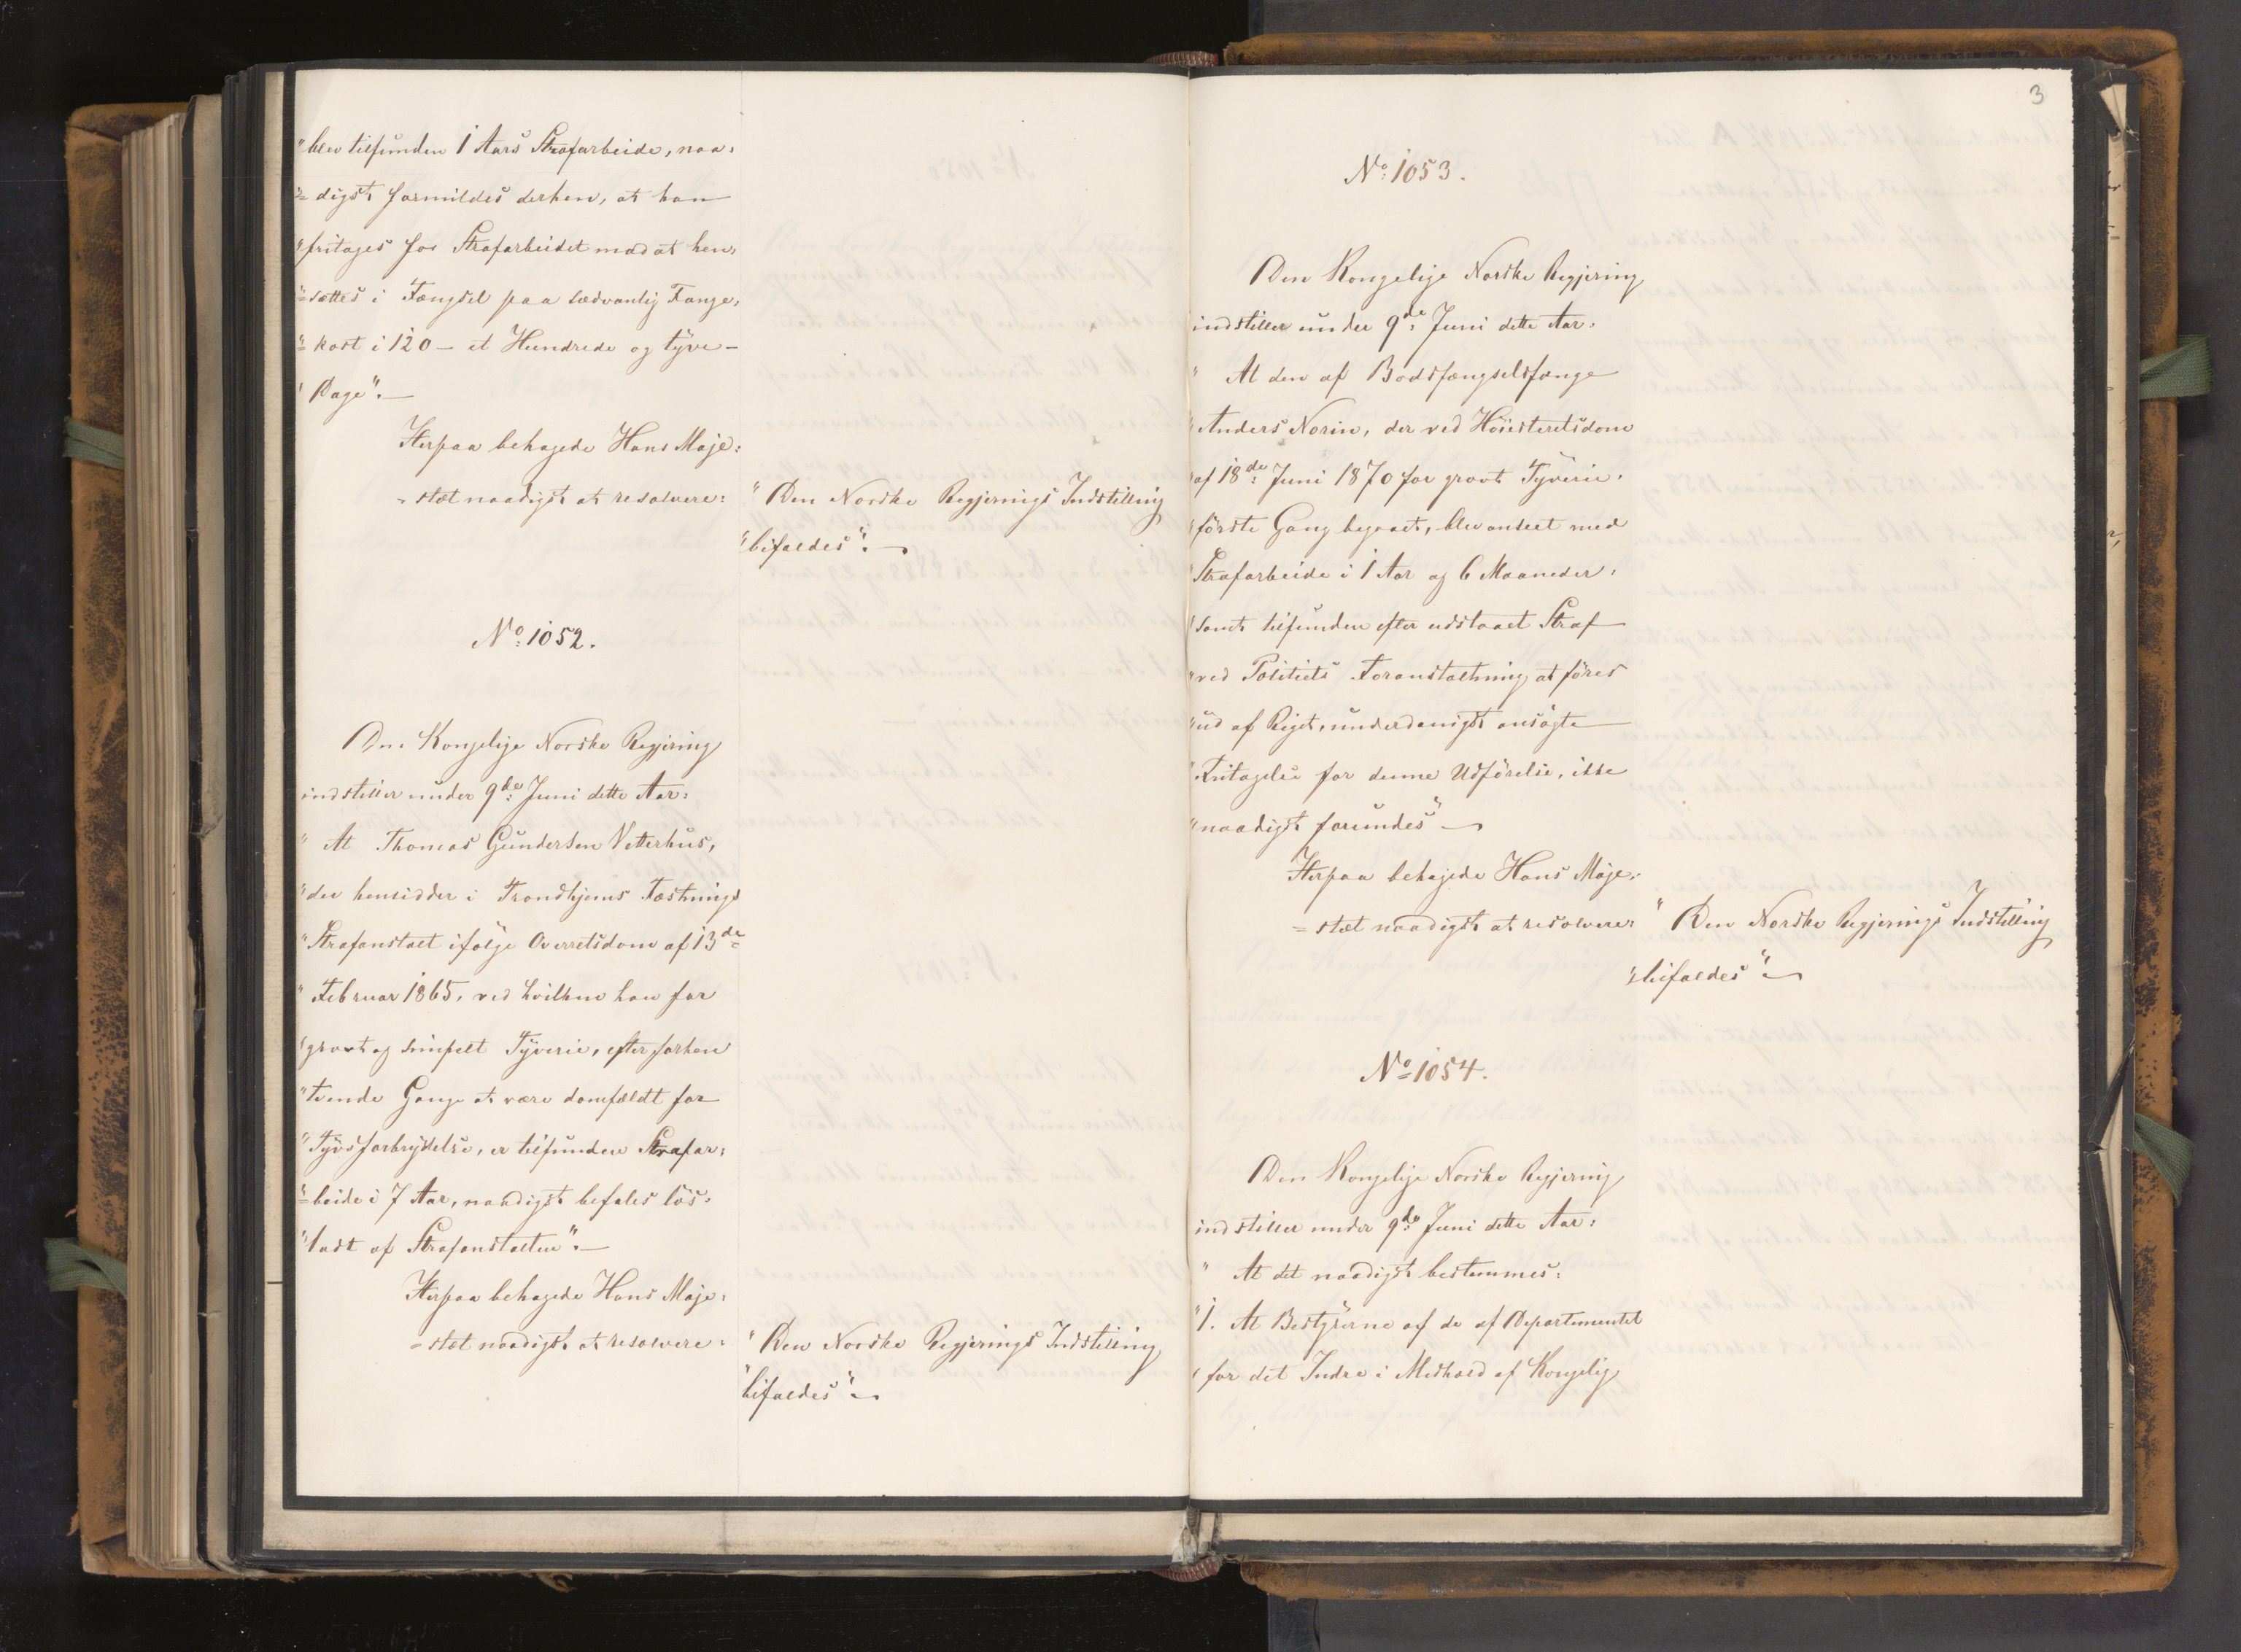 "blev tilfunden 1 Aars Strafarbeide, naa=
"=digst formildes derhen, at han
"fritages for Strafarbeidet mod at hen=
"=sættes i Fængsel paa sædvanlig Fange=
"=kost i 120 - et Hundrede og tyve -
"Dage".-
Herpaa behagede Hans Maje=
=stæt naadigst at resolvere:
"Den Norske Regjerings Indstilling
"bifaldes".-
No: 1052.
Den Kongelige Norske Regjering
indstiller under 9de Juni dette Aar:
"At Thomas Gundersen Vetterhus,
"der hensidder i Trondhjems Fæstnings
"Strafanstalt ifølge Overretsdom af 13de
"Februar 1865, ved hvilken han for
"grovt og simpelt Tyverie, efter forhen
"tvende Gange at være domfældt for
"Tyvsforbrydelse, er tilfunden Strafar=
"=beide i 7 Aar, naadigst befales løs=
"ladt af Strafanstalten".-
Herpaa behagede Hans Maje=
=stæt naadigst at resolvere:
"Den Norske Regjerings Indstilling
"bifaldes".-
3
No: 1053.
Den Kongelige Norske Regjering
indstiller under 9de Juni dette Aar:
"At den af Bodsfængselsfange
"Anders Norin, der ved Høiesteretsdom
"af 18de Juni 1870 for grovt Tyverie,
"første Gang begaaet, blev anseet med
"Strafarbeide i 1 Aar og 6 Maaneder,
"samt tilfunden efter udstaaet Straf
"ved Politiets Foranstaltning at føres
"ud af Riget, underdanigst ansøgte
"Fritagelse for denne Udførelse, ikke
"naadigst forundes".-
Herpaa behagede Hans Maje=
=stæt naadigst at resolvere:
"Den Norske Regjerings Indstilling
"bifaldes".-
No: 1054.
Den Kongelige Norske Regjering
indstiller under 9de Juni dette Aar:
"At det naadigst bestemmes:
"1. At Bestyrerne af de af Departementet
"for det Indre i Medhold af Kongelig